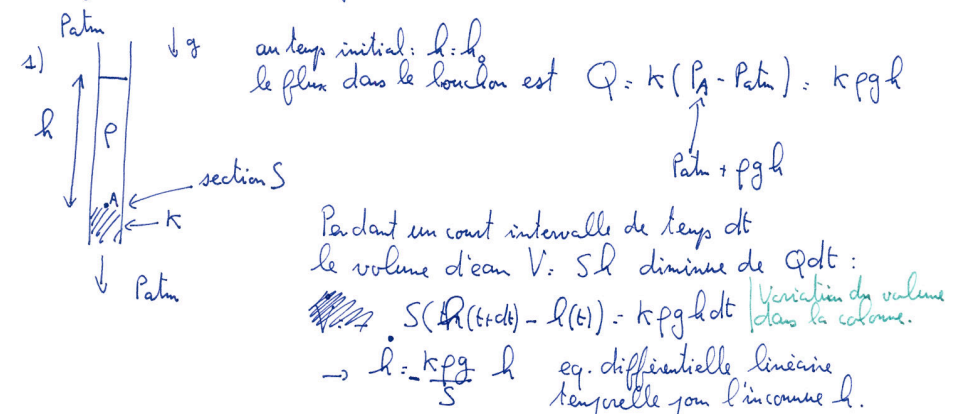 Patm
1)
↓ g
au temps initial : h = h₀
le flux dans le bouchon est Q = K (P_A - Patm) = K ρ g h
Patm + ρ g h
h
ρ
A
section S
K
Patm
Pendant un court intervalle de temps dt
le volume d'eau V = S h diminue de Q dt :
S (h(t+dt) - h(t)) = K ρ g h dt
Variation du volume
dans la colonne.
→ ḣ = - Kρg/S h eq. différentielle linéaire
temporelle pour l'inconnue h.